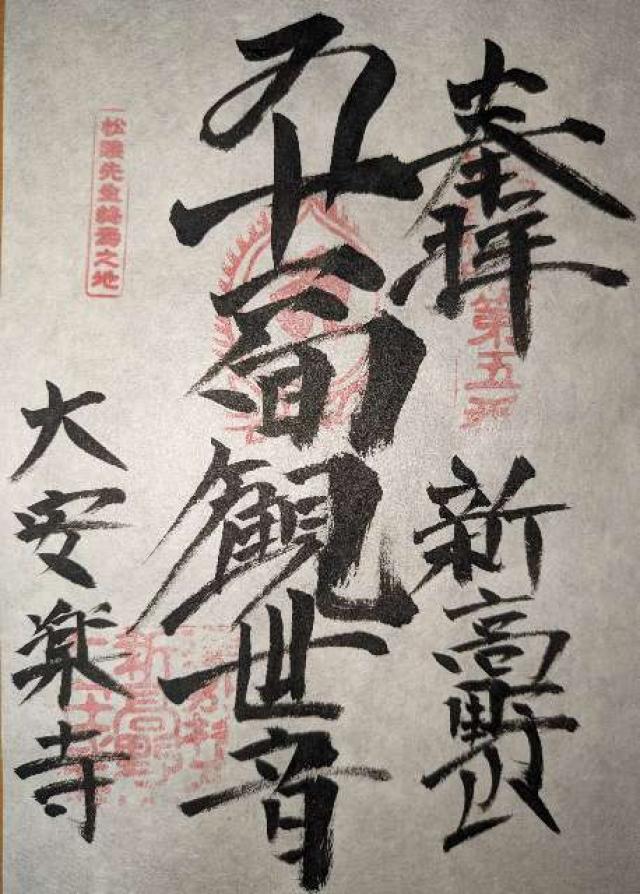 奉拝
新高野山
十一面観世音
大安楽寺
第五番
松陰先生終焉之地